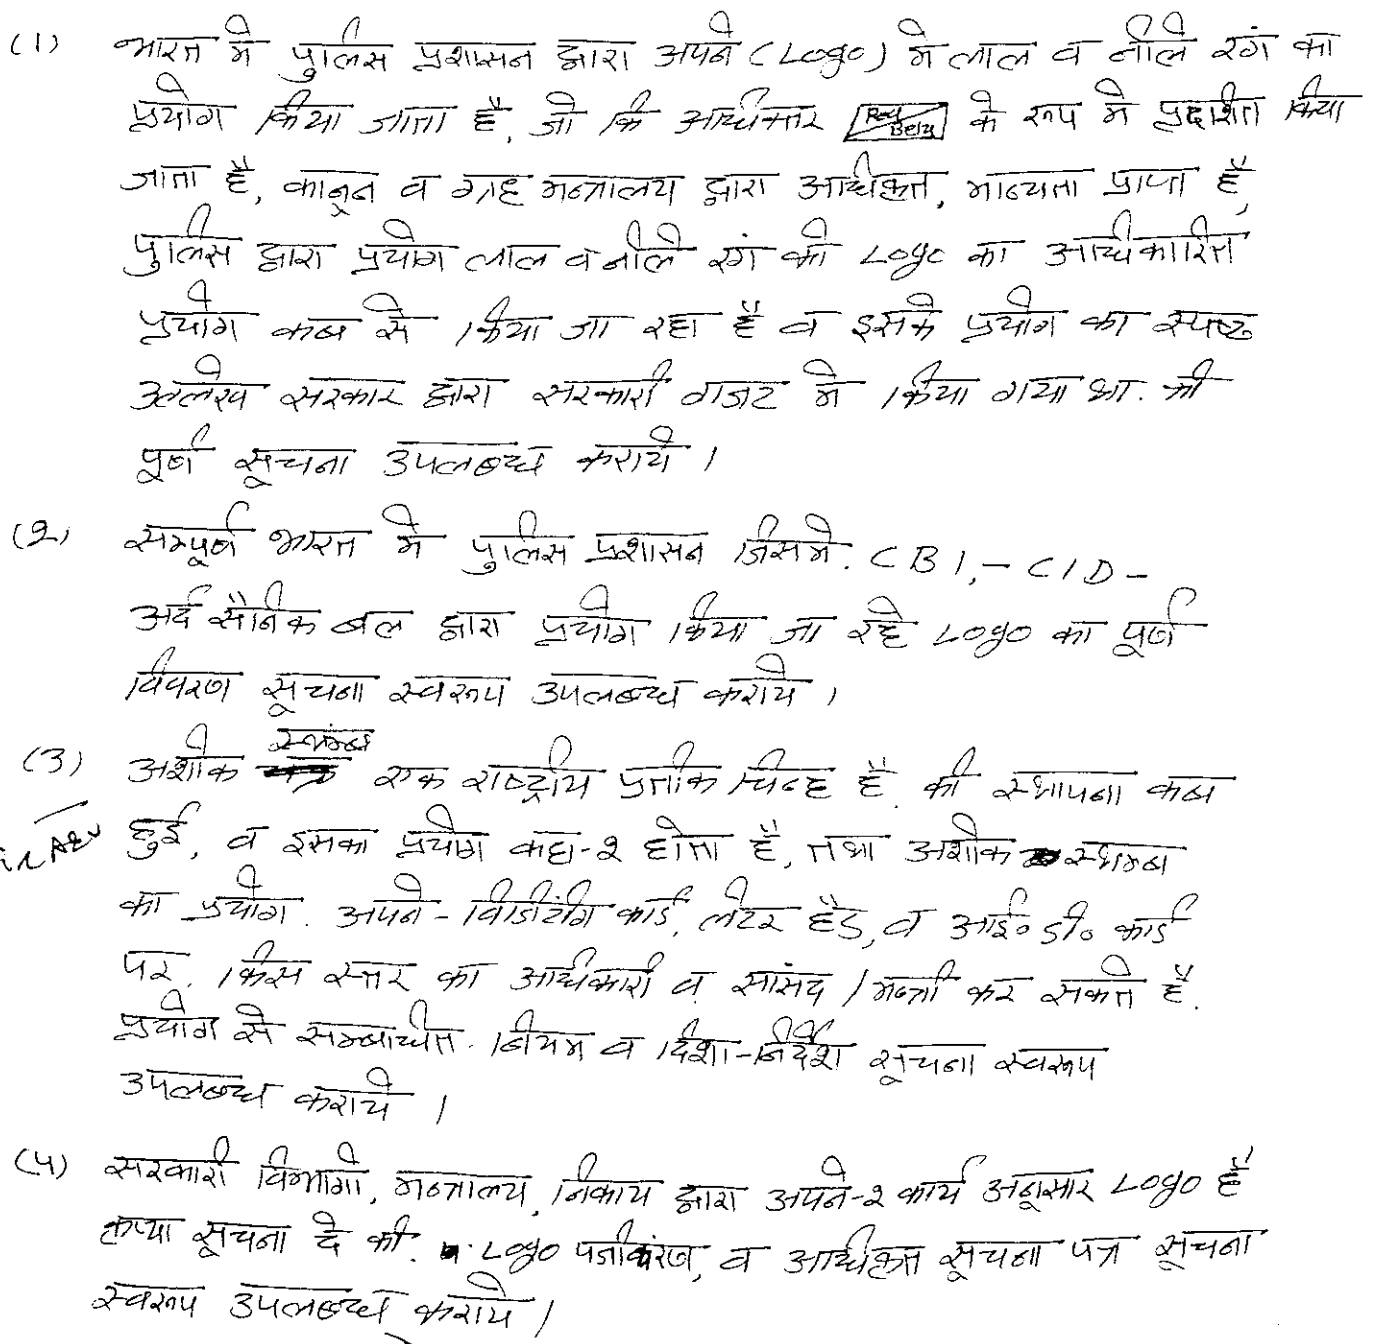 (1) भारत मे पुलिस प्रशासन द्वारा अपने (Logo) मे लाल व नीले रंग का
प्रयोग किया जाता है, जो कि अधिकतर Red के रूप मे प्रदर्शित किया
जाता है, कानून व ग्रह मन्त्रालय द्वारा अधिकृत, मान्यता प्राप्त है,
पुलिस द्वारा प्रयोग लाल व नीले रंग की Logo का आधिकारित
प्रयोग कब से किया जा रहा है व इसके प्रयोग का स्पष्ट
उल्लेख सरकार द्वारा सरकारी गजट मे किया गया था. की
पूर्ण सूचना उपलब्ध कराये ।
(2) सम्पूर्ण भारत मे पुलिस प्रशासन जिसमे. CBI,- CID-
अर्द सैनिक बल द्वारा प्रयोग किया जा रहे Logo का पूर्ण
विवरण सूचना स्वरूप उपलब्ध कराये ।
(3) अशोक स्तम्ब एक राष्ट्रीय प्रतीक चिन्ह है. की स्थापना कब
हुई, व इसका प्रयोग कहा-२ होता है, तथा अशोक स्थम्ब
का प्रयोग. अपने- विजिटींग कार्ड, लेटर हैड, व आई० डी० कार्ड
पर. किस स्तर का अधिकारी व सांसद / मन्त्री कर सकते है.
प्रयोग से सम्बाधित. नियम व दिशा-निर्देश सूचना स्वरूप
उपलब्ध कराये ।
(4) सरकारी विभागो, मन्त्रालय, निकाय द्वारा अपने-२ कार्य अनूसार Logo है
कृप्या सूचना दे की. Logo पंजीकरण, व अधिकृत सूचना पत्र सूचना
स्वरूप उपलब्ध कराये ।